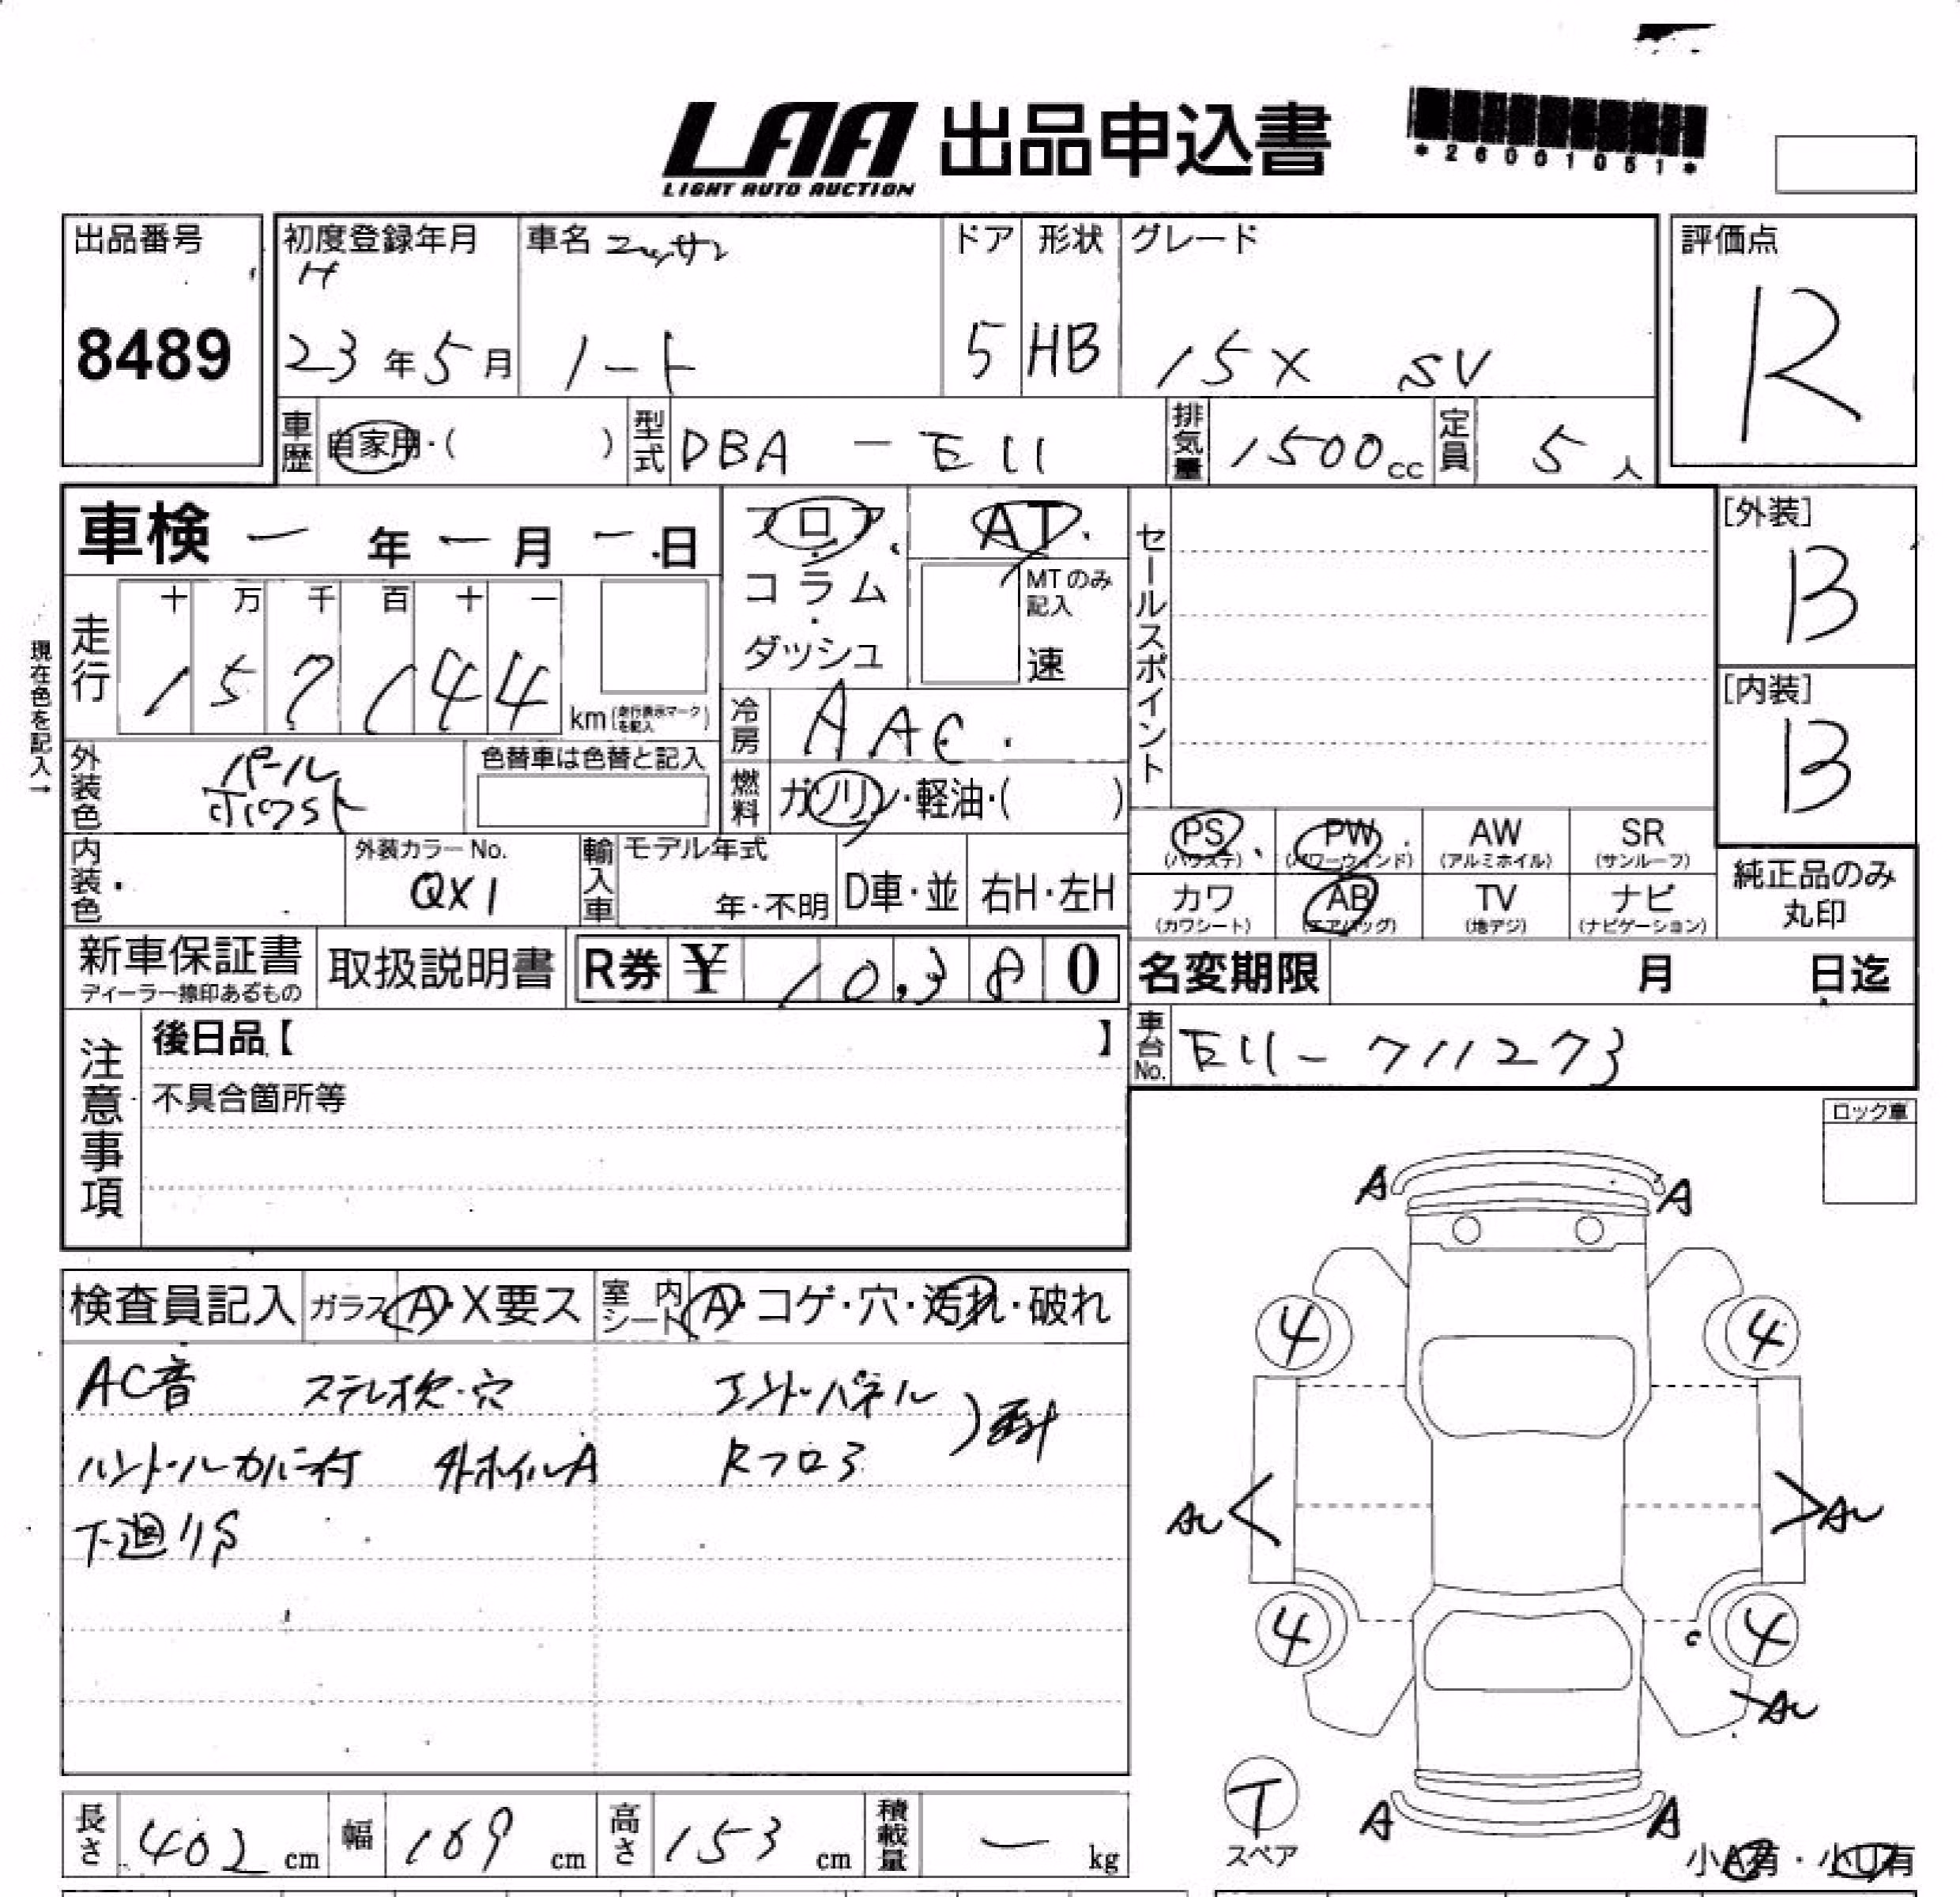 LAA 出品申込書
LIGHT AUTO AUCTION
*26001051*
出品番号
8489
初度登録年月
H
23年5月
車名 ニッサン
ノート
ドア
5
形状
HB
グレード
15X SV
評価点
R
車歴 自家用・( )
型式 DBA-E11
排気量 1500cc
定員 5人
車検 ー年ー月ー日
フロア
コラム
ダッシュ
AT
MTのみ記入
速
セールスポイント
[外装]
B
[内装]
B
現在色を記入→
走行
十万千百十一
157144
km(走行表示マークを記入)
冷房 AAC
外装色 パールホワイト
色替車は色替と記入
燃料 ガソリン・軽油・( )
内装色
外装カラーNo.
QX1
輸入車
モデル年式
年・不明
D車・並
右H・左H
PS
(パワステ)
PW
(パワーウィンド)
AW
(アルミホイル)
SR
(サンルーフ)
カワ
(カワシート)
AB
(エアバッグ)
TV
(地デジ)
ナビ
(ナビゲーション)
純正品のみ
丸印
新車保証書
ディーラー捺印あるもの
取扱説明書
R券 ¥ 10,380
名変期限 月 日迄
車台No. E11-711273
注意事項
後日品【 】
不具合箇所等
ロック車
検査員記入
ガラス A・X要ス
室内シート A・コゲ・穴・汚れ・破れ
AC音 ステレオ欠・穴 エンドパネル
ハンドルカバー付 外ホイルA Rフロア
下廻りS
A A
4 4
AU AU
4 4
C
AU
T
スペア
A A
小A有・小U有
長さ 402cm
幅 169cm
高さ 153cm
積載量 ーkg